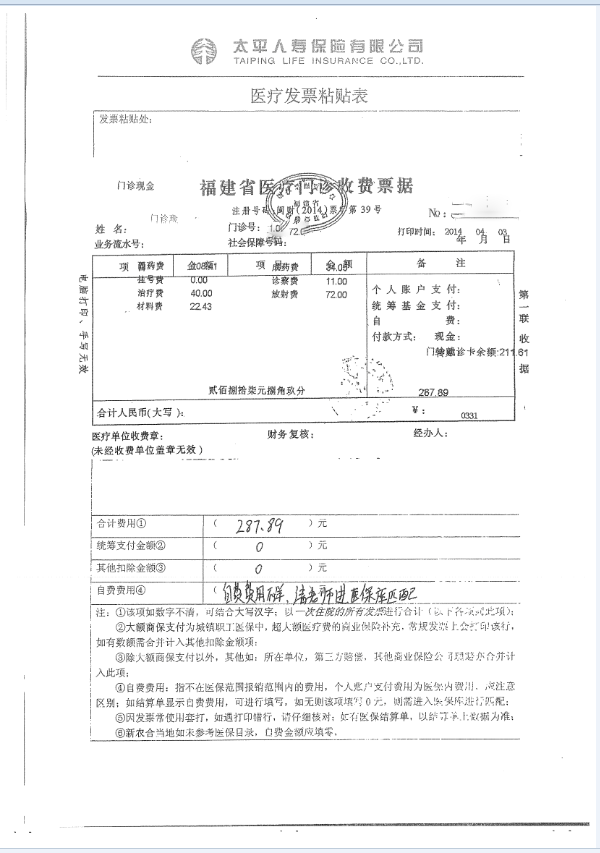 太平人寿保险有限公司
TAIPING LIFE INSURANCE CO.,LTD.
医疗发票粘贴表
发票粘贴处:
门诊现金
福建省医疗门诊收费票据
注册号码:闽财(2014)票 第39号
No:
姓名: 门诊现
门诊号: 1.0 72.0
打印时间: 2014 04 03
年 月 日
业务流水号:
社会保障号码:
项目 金额 项目 金额 备注
西药费 成药费
挂号费 0.00 诊察费 11.00
治疗费 40.00 放射费 72.00
材料费 22.43
个人账户支付:
统筹基金支付:
自 费:
付款方式: 现金:
诊卡余额:211.61
第一联 收据
电脑打印、手写无效
贰佰捌拾柒元捌角玖分
287.89
合计人民币(大写):
¥:
0331
医疗单位收费章:
财务复核:
经办人:
(未经收费单位盖章无效)
合计费用① ( 287.89 )元
统筹支付金额② ( 0 )元
其他扣除金额③ ( 0 )元
自费费用④ ( 自费费用不详,请老师进医保库匹配
注: ①该项如数字不清,可结合大写汉字;以一次住院的所有发票进行合计(以下各项同此项);
②大额商保支付为城镇职工医保中,超大额医疗费的商业保险补充,常规发票上会打印该行,
如有数额需合计入其他扣除金额项;
③除大额商保支付以外,其他如:所在单位,第三方赔偿,其他商业保险公司理赔亦合并计
入此项;
④自费费用:指不在医保范围报销范围内的费用,个人账户支付费用为医保内费用,应注意
区别;如结算单显示自费费用,可进行填写,如无则该项填写0元,则需进入医保库进行匹配;
⑤因发票常使用套打,如遇打印错行,请仔细核对;如有医保结算单,以结算单上数据为准;
⑥新农合当地如未参考医保目录,自费金额应填零。